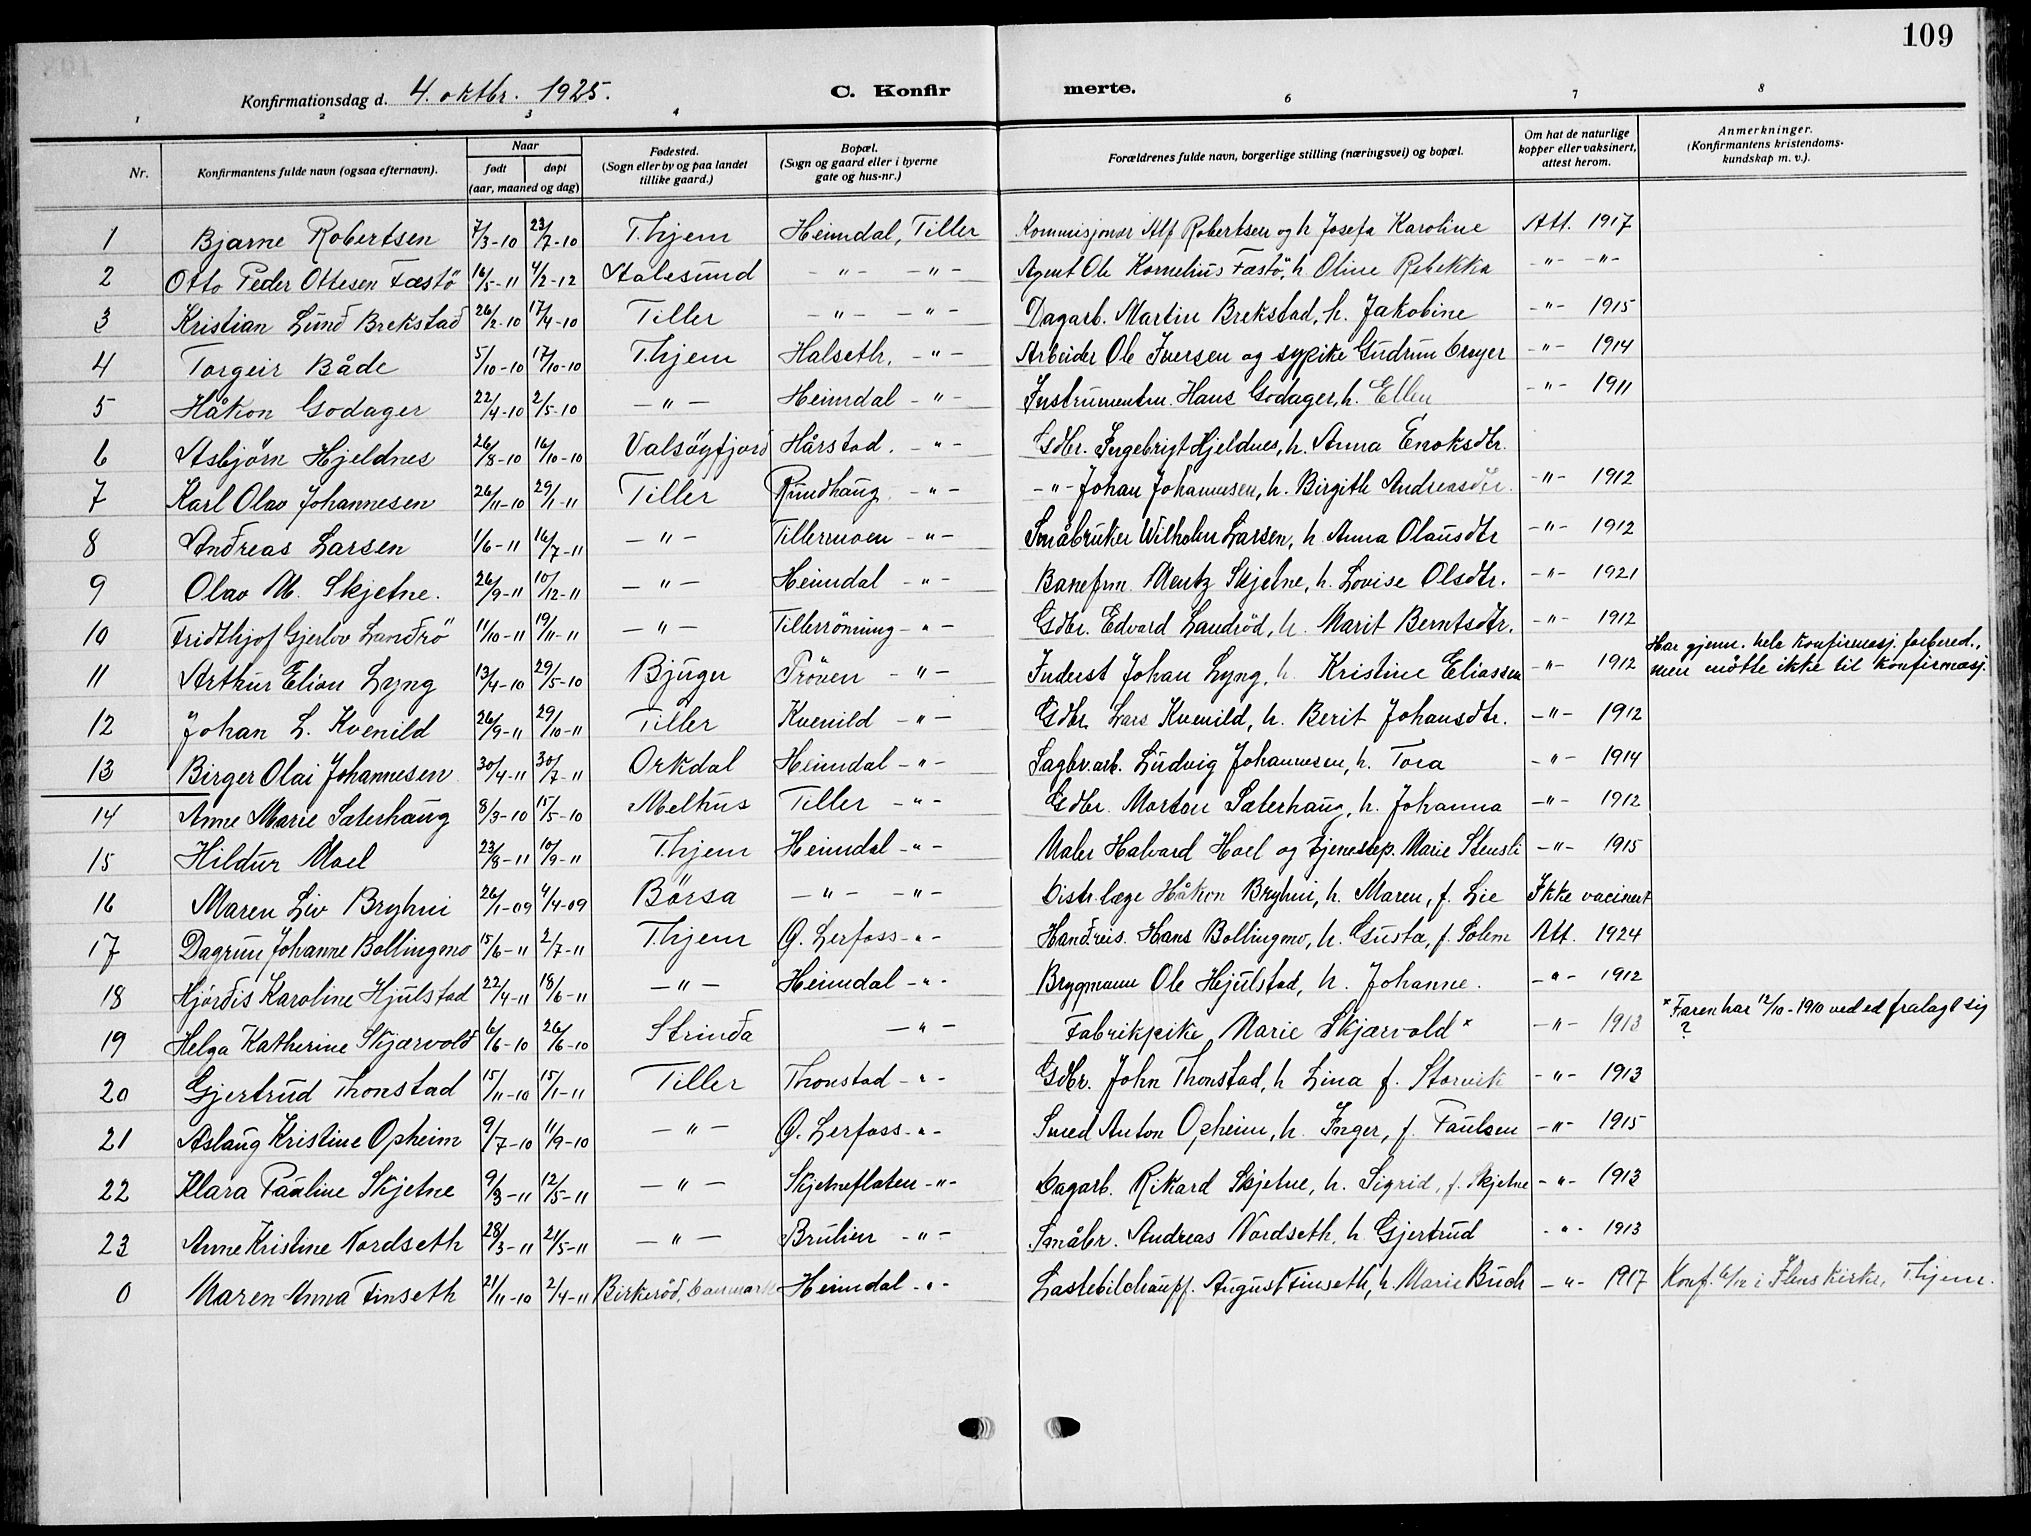 109
Konfirmationsdag d. 4. oktbr. 1925.
C. Konfirmerte.
1 2 3 4 6 7 8
Nr. | Konfirmantens fulde navn (ogsaa efternavn). | Naar født døpt (aar, maaned og dag) | Fødested. (Sogn eller by og paa landet tillike gaard.) | Bopæl. (Sogn og gaard eller i byerne gate og hus-nr.) | Forældrenes fulde navn, borgerlige stilling (næringsvei) og bopæl. | Om hat de naturlige kopper eller vaksinert, attest herom. | Anmerkninger. (Konfirmantens kristendoms-kundskap m. v.).
1 Bjarne Robertsen 7/3-10 23/7-10 T.hjem Heimdal, Tiller Kommisjonær Alf Robertsen og h Josefa Karoline Att. 1917
2 Otto Peder Ottesen Fæstö 16/5-11 4/2-12 Aalesund -"- -"- Agent Ole Kornelius Fæstö, h. Oline Rebekka -"- -"-
3 Kristian Lund Brekstad 26/2-10 17/4-10 Tiller -"- -"- Dagarb. Martin Brekstad, h. Jakobine -"- 1915
4 Torgeir Både 5/10-10 17/10-10 T.hjem Halseth, -"- Arbeider Ole Iversen og sypike Gudrun Creyer -"- 1914
5 Håkon Godager 22/4-10 2/5-10 -"- Heimdal -"- Instrumentm. Hans Godager, h. Ellen -"- 1911
6 Asbjörn Hjeldnes 26/8-10 16/10-10 Valsöyfjord Hårstad. -"- Gdbr. Ingebrigt Hjeldnes, h. Anna Enoksdtr.
7 Karl Olav Johannesen 26/11-10 29/1-11 Tiller Rundhaug. -"- -"- Johan Johannesen, h. Birgith Andreasdtr. -"- 1912
8 Andreas Larsen 1/6-11 16/7-11 -"- Tillermoen -"- Småbruker Wilhelm Larsen, h. Anna Olausdtr -"- 1912
9 Olav M. Skjetne. 26/9-11 10/12-11 -"- Heimdal -"- Banefrm. Mentz Skjetne, h. Lovise Olsdtr. -"- 1921
10 Fridthjof Gjerlöv Landrö 11/10-11 19/11-11 -"- Tillerröning -"- Gdbr. Edvard Landröd, h. Marit Berntsdtr. -"- 1912
11 Arthur Elion Lyng 13/4-10 29/5-10 Bjugn Pröven -"- Inderst Johan Lyng, h. Kristine Eliassen -"- 1912 Har gjenn. hele konfirmasj. forbered., men mötte ikke til konfirmasj.
12 Johan L. Kvenild 26/9-11 29/10-11 Tiller Kvenild -"- Gdbr. Lars Kvenild, h. Berit Johansdtr. -"- 1912
13 Birger Olai Johannesen 30/4-11 30/7-11 Orkdal Heimdal -"- Sagbr.arb. Ludvig Johannesen, h. Tora -"- 1914
14 Anne Marie Sæterhaug 8/3-10 15/5-10 Melhus Tiller -"- Gdbr. Morten Sæterhaug, h. Johanna -"- 1912
15 Hildur Moel 23/8-11 10/9-11 T.hjem Heimdal -"- Maler Halvard Hoel og tjenestep. Marie Stensli -"- 1915
16 Maren Liv Bryhni 26/1-09 4/4-09 Börsa -"- -"- Distr. læge Håkon Bryhni, h. Maren, f. Lie Ikke vacinert
17 Dagrun Johanne Bollingmo 15/6-11 2/7-11 T.hjem Ö. Lerfoss -"- Handreis. Hans Bollingmo, h. Gusta, f. Solem Att. 1924
18 Hjördis Karoline Hjulstad 22/4-11 18/6-11 -"- Heimdal -"- Bryggmann Ole Hjulstad, h. Johanne. -"- 1912
19 Helga Katherine Skjærvold 6/6-10 26/6-10 Strinda -"- Fabrikpike Marie Skjærvold* -"- 1913 *Faren har 12/10-1910 ved ed fralagt sig ?
20 Gjertrud Thonstad 15/11-10 15/1-11 Tiller Thonstad -"- Gdbr. John Thonstad, h Lina f. Storvik -"- 1913
21 Aslaug Kristine Opheim 9/7-10 11/9-10 -"- Ö. Lerfoss -"- Smed Anton Opheim, h. Inger, f. Paulsen -"- 1915
22 Klara Pauline Skjetne 9/3-11 12/5-11 -"- Skjetneflaten -"- Dagarb. Rikard Skjetne, h. Sigrid, f. Skjetne -"- 1913
23 Anne Kristine Nordseth 28/3-11 21/5-11 -"- Brulien -"- Småbr. Andreas Nordseth, h Gjertrud -"- 1913
0 Maren Anna Finseth 21/11-10 2/4-11 Birkeröd, Danmark Heimdal -"- Lastebilchauff. August Finseth, h. Marie Buch -"- 1917 Konf. 6/12 i Ilens kirke, T.hjem.